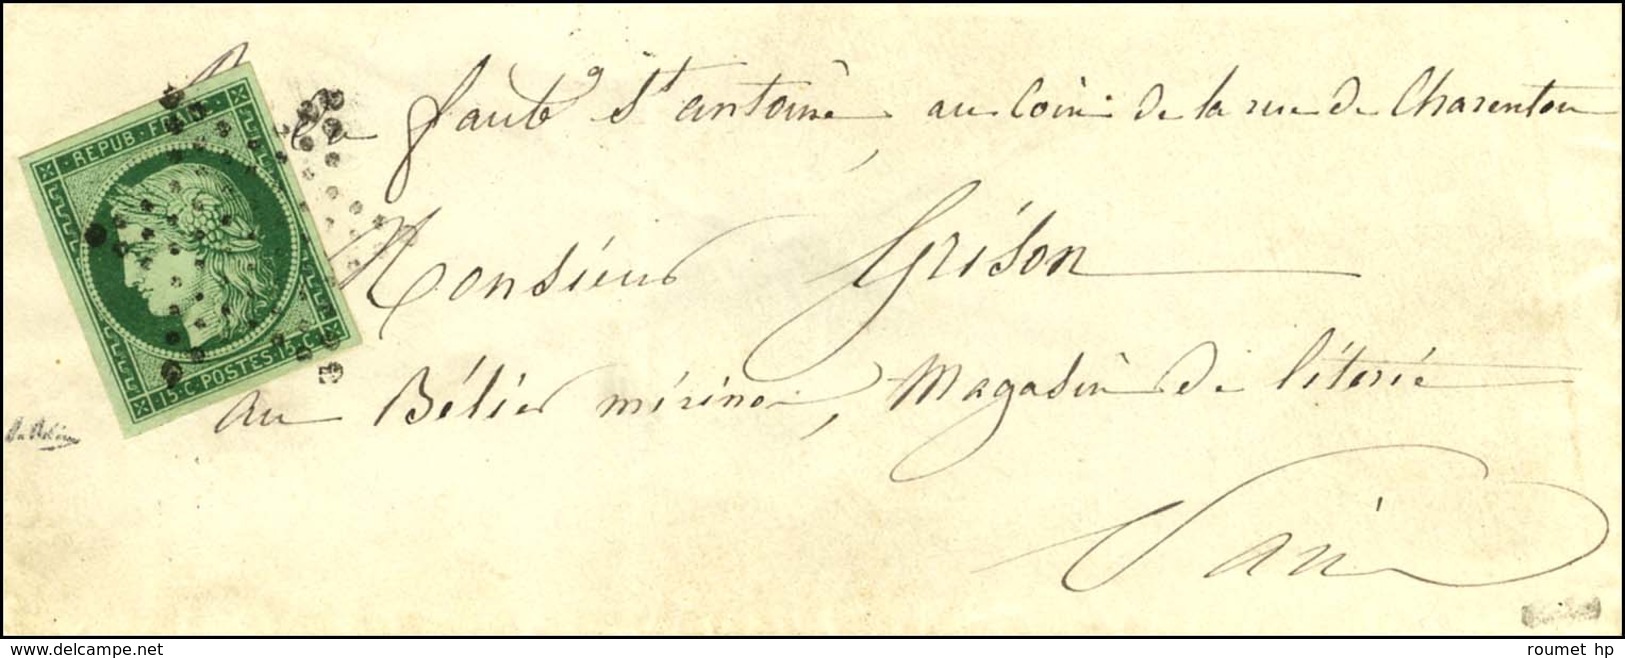 faubg St antoine, au Coin de la rue de Charenton
Monsieur Grison
au Bélier mérinos, Magasin de literie
Paris
REPUB. FRANC.
15.C. POSTES. 15.C.
www.delcampe.net
roumet hp